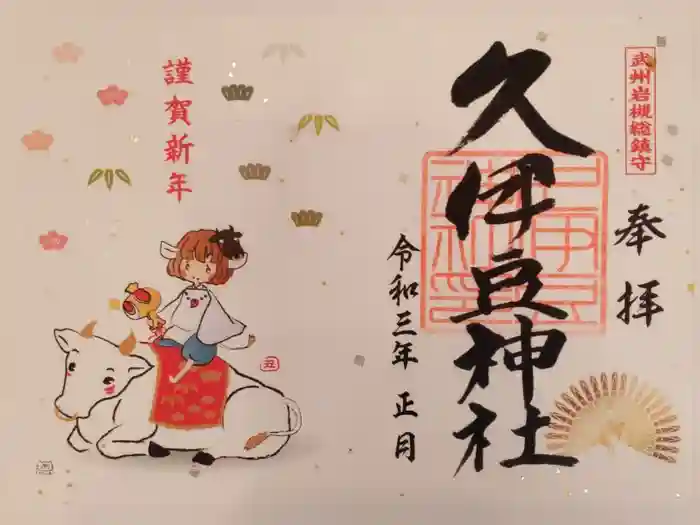 武州岩槻総鎮守
奉拝
久伊豆神社
令和三年 正月
謹賀新年
丑